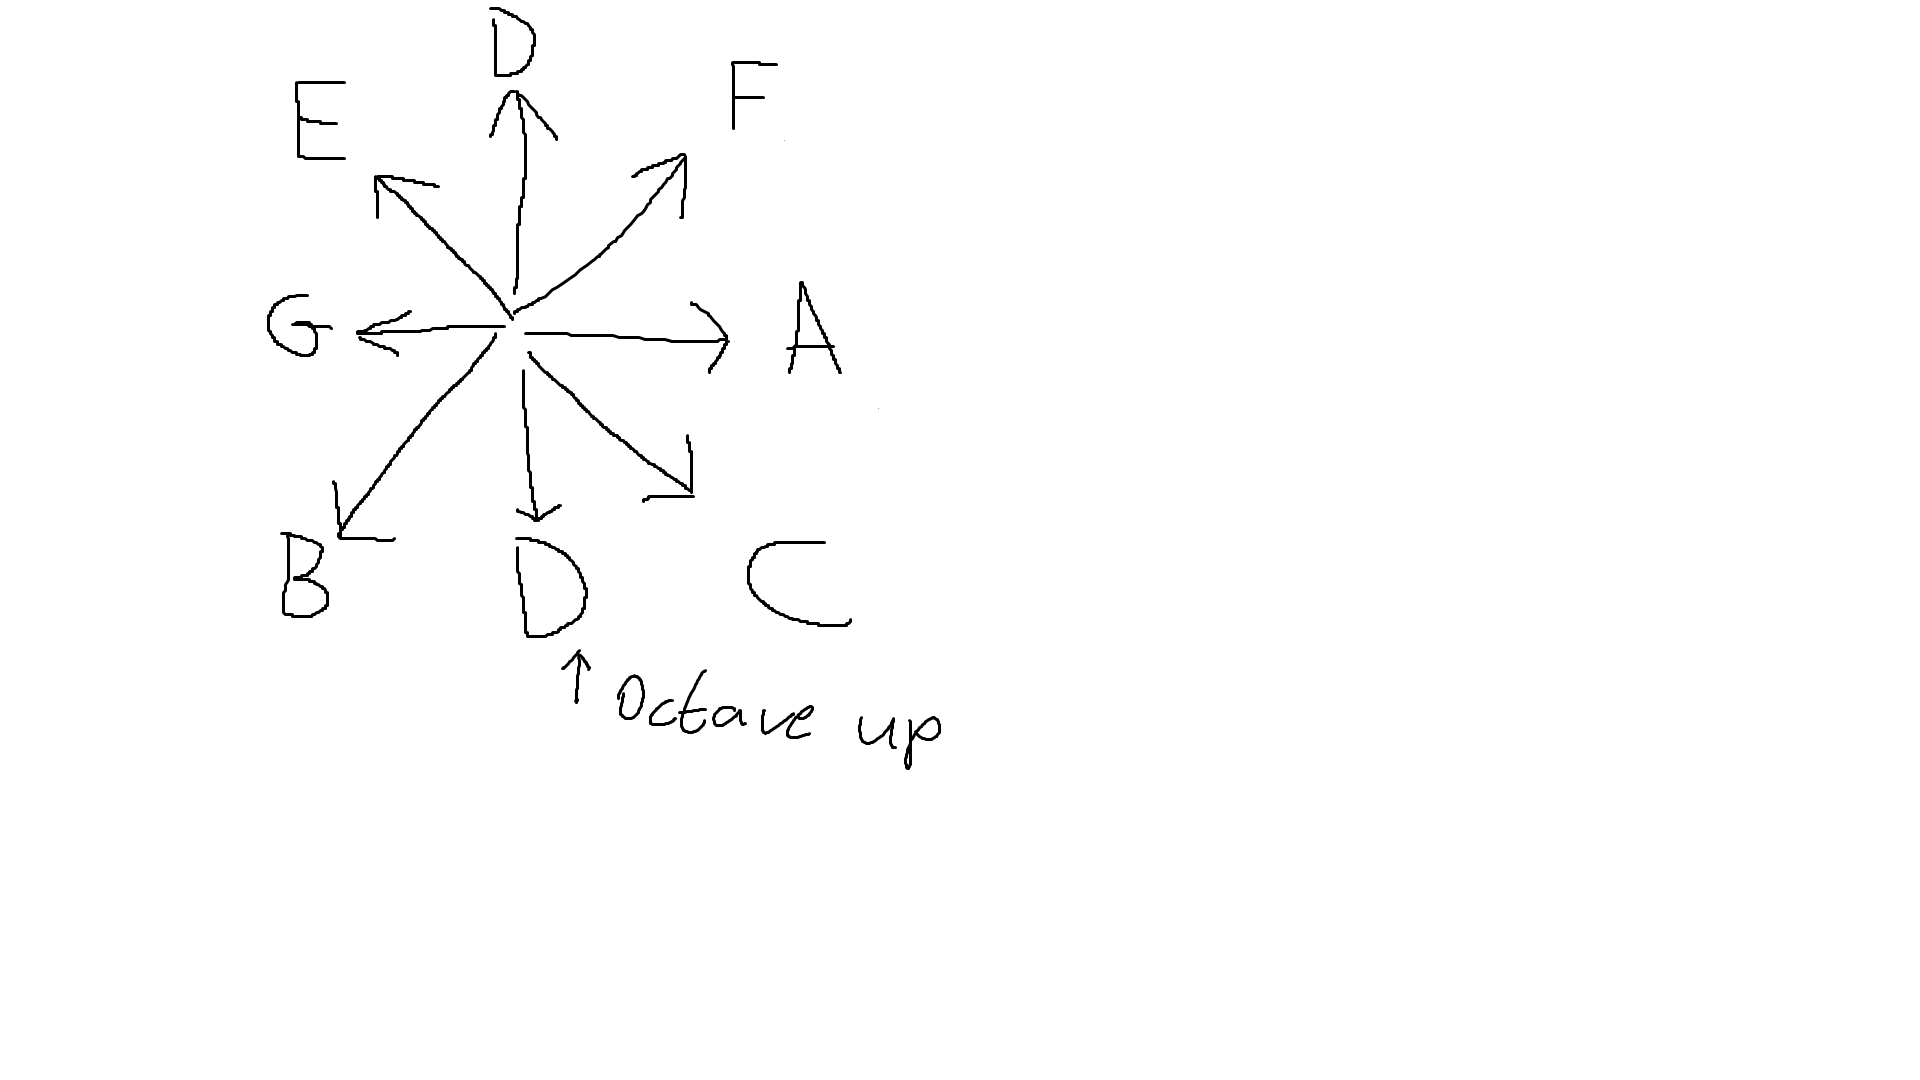 D
E
F
G
A
B
D
C
Octave up